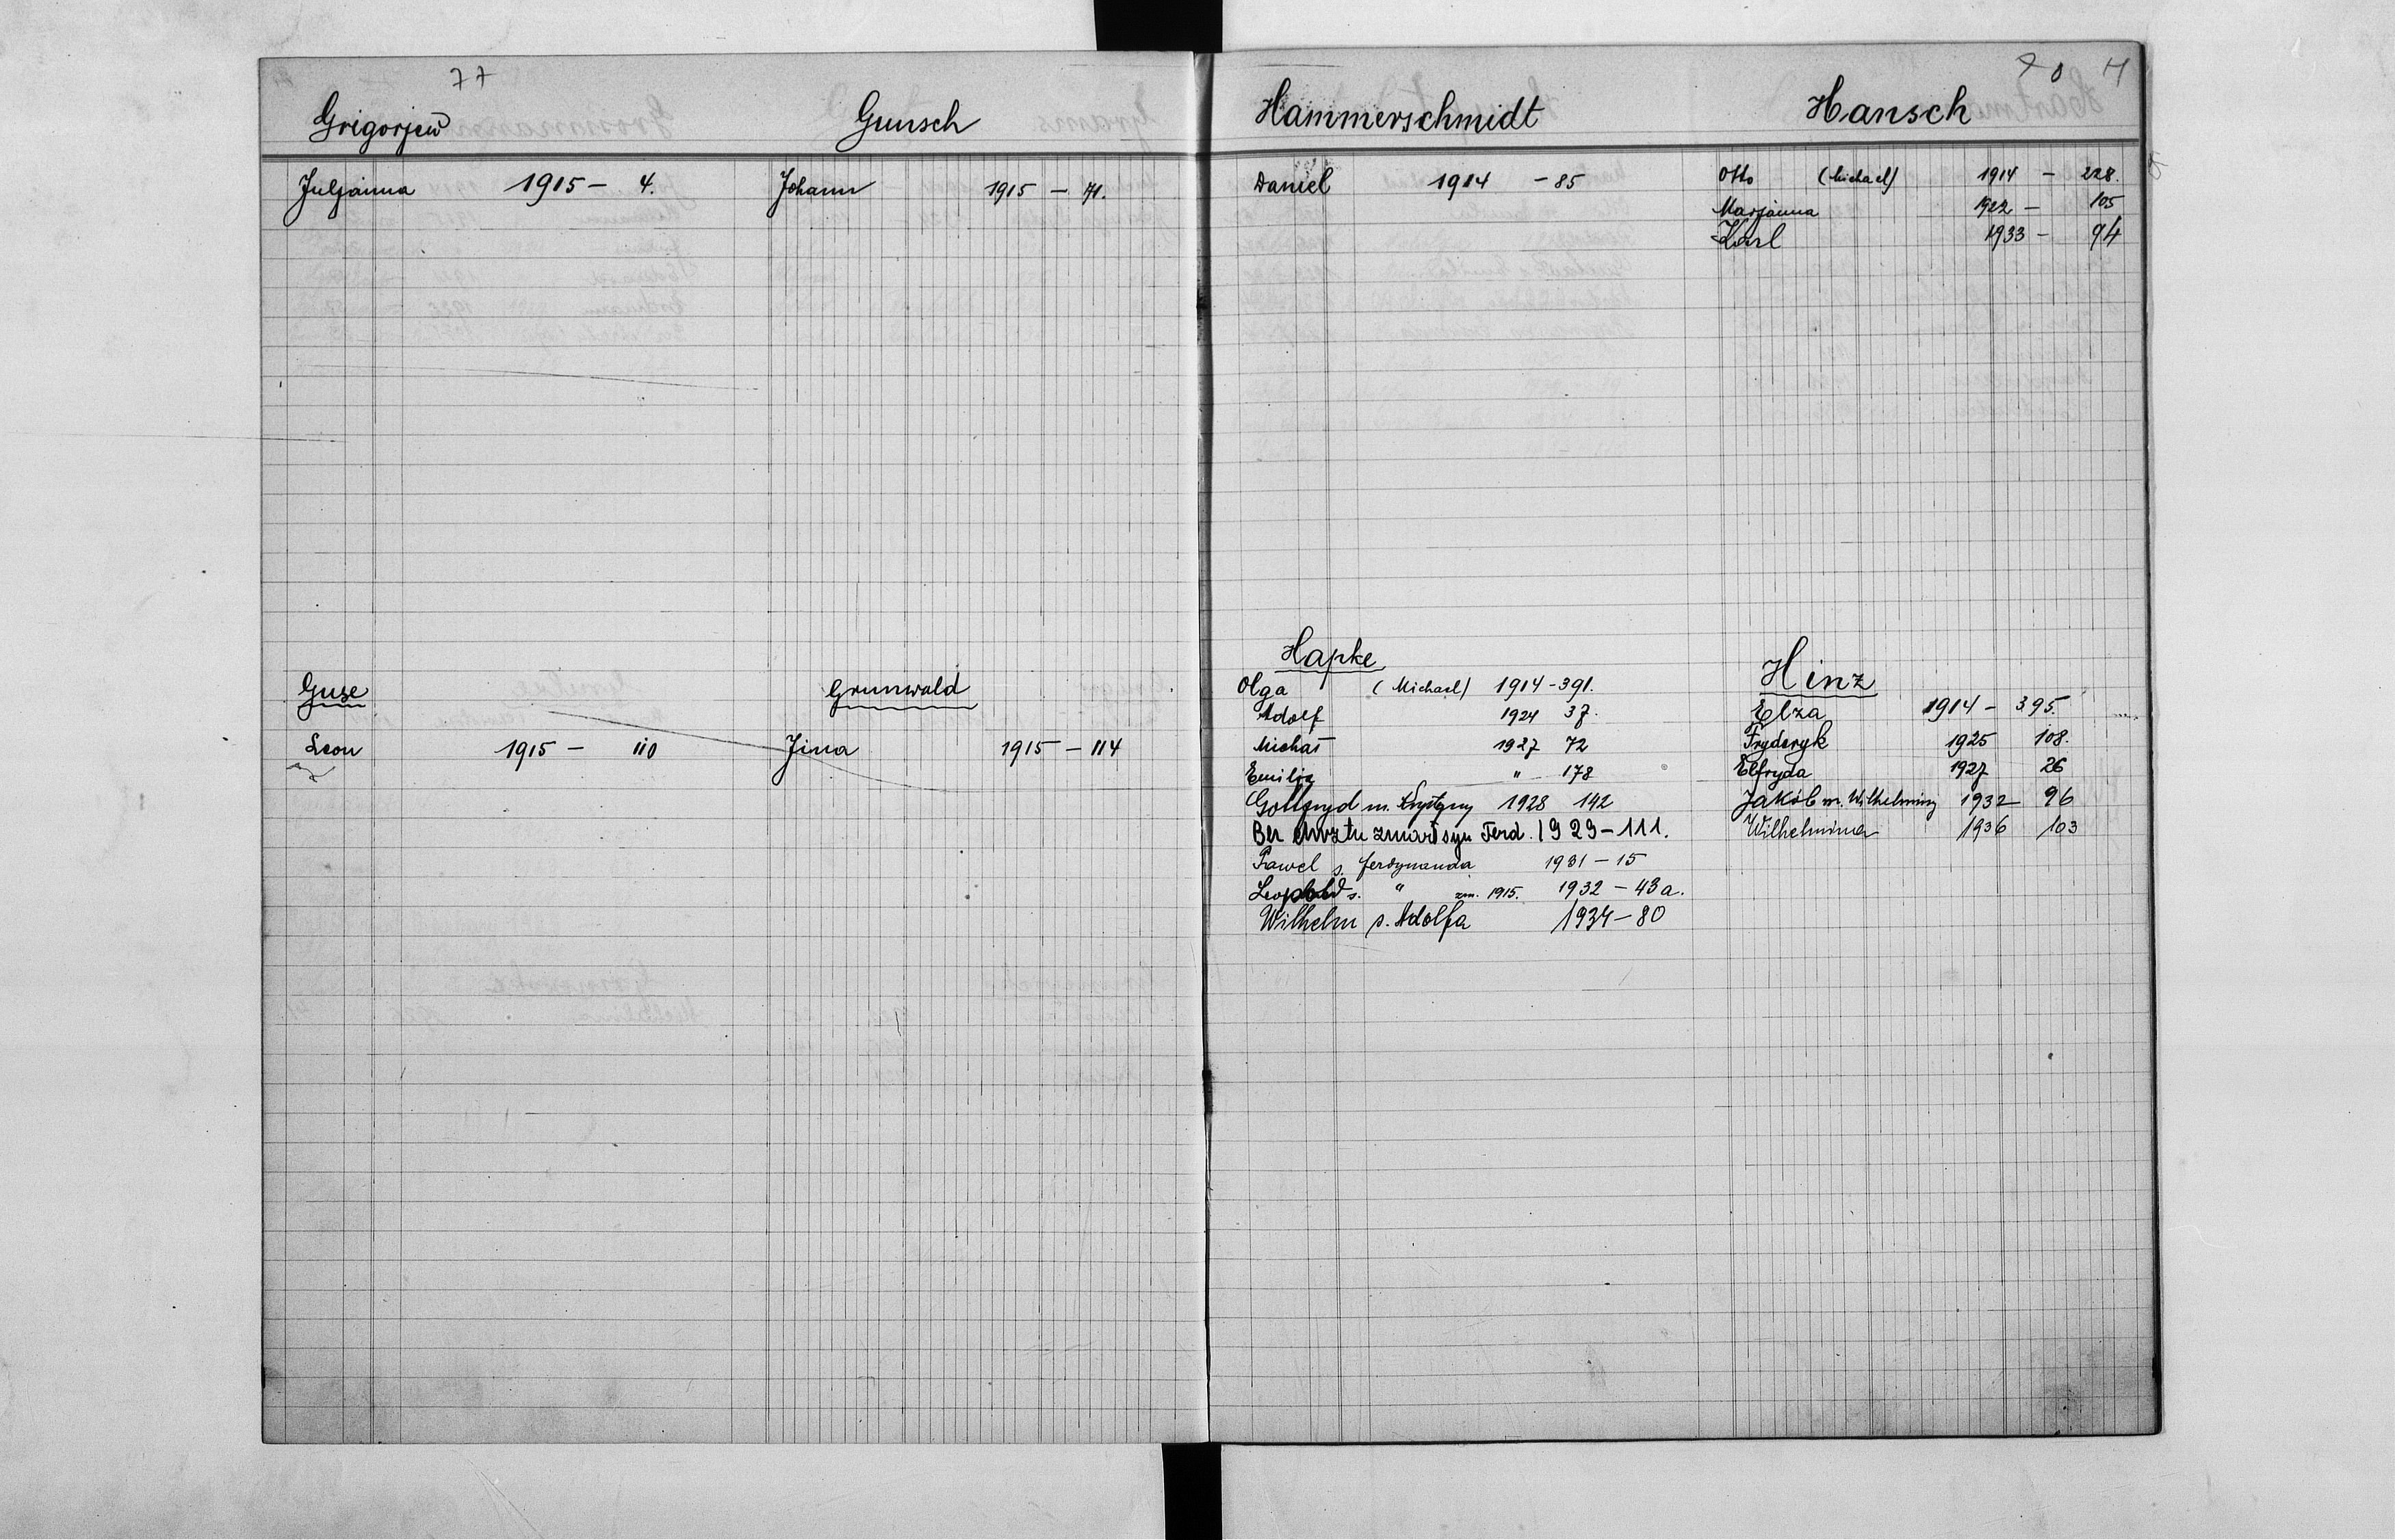 77
Grigorjew
Juljanna 1915 - 4.
Gunsch
Johann 1915 - 71.
Guse
Leon 1915 - 110
Grunwald
1915 - 114
H
Hammerschmidt
Daniel 1914 - 85
Hansch
Otto (Michael) 1914 - 228.
Marjanna 1922 - 105
Karl 1933 - 94
Hapke
Olga (Michael) 1914 - 391.
Adolf 1924 37.
Michał 1927 72
Emilja " 178
Gottfryd m. Krystyny 1928 142
Bez chrztu zmarł syn Ferd. 1929 - 111.
Paweł s. Ferdynanda 1931 - 15
Leopold s. " zm. 1915. 1932 - 43a.
Wilhelm s. Adolfa 1934 - 80
Hinz
Elza 1914 - 395.
Fryderyk 1925 108.
Elfryda 1927 26
Jakób m. Wilhelminy 1932 96
Wilhelmina 1936 103